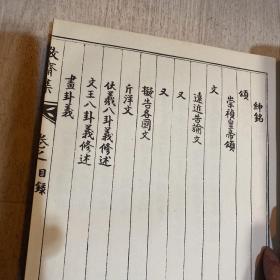 紳銘
頌
崇禎皇帝頌
文
遠近告諭文
又
又
擬告各國文
斥洋文
伏羲八卦義修述
文王八卦義修述
畫卦義
齋集
卷之
目録